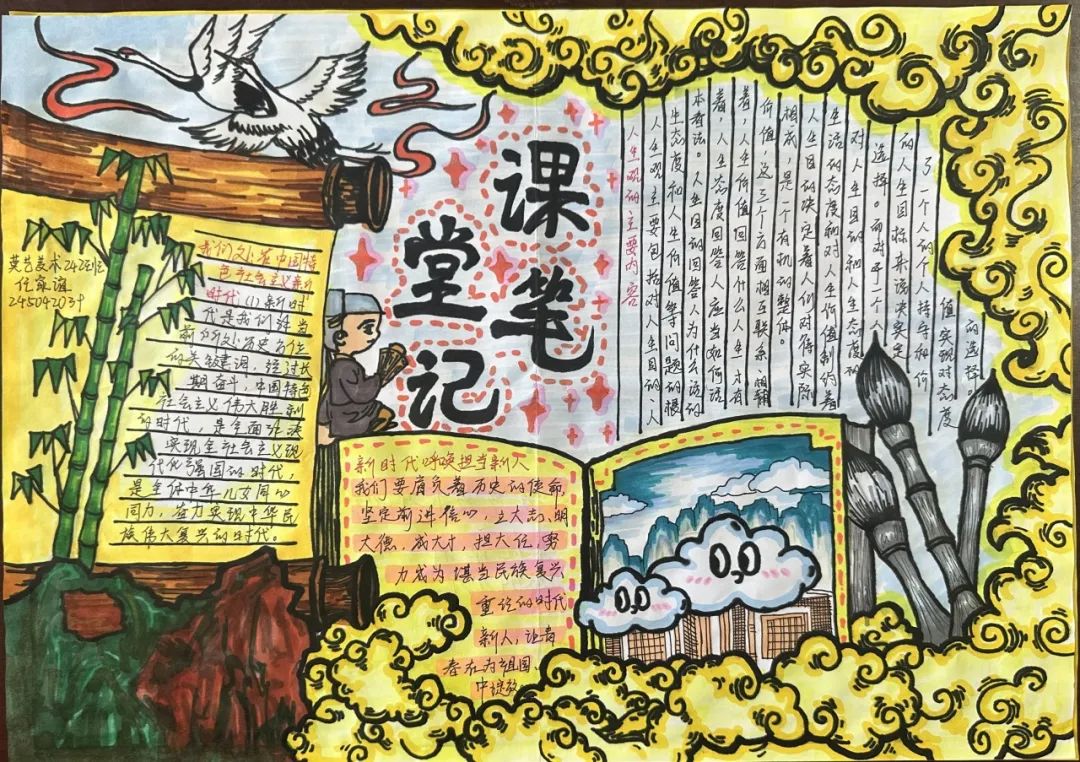 课堂笔记
美术242班
245042039
我们处在中国特
色社会主义新
时代(1)新时
代是我们当
前所处历史方位
的关键词,经过长
期奋斗,中国特色
社会主义伟大胜利
的时代,是全面
实现全社会主义现
代化强国的时代,
是全体中华儿女同心
同力,奋力实现中华民
族伟大复兴的时代。
人生观的主要内容
人生观主要包括对人生目的、人
生态度和人生价值等问题的根
本看法。人生目的回答人为什么活的
着,人生态度回答人应当如何活
着,人生价值回答什么人生才有
价值,这三个方面相互联系、相辅
相成,是一个有机的整体。
人生目的决定着人们对待实际
生活的态度和对人生价值制约着
对人生目的和人生态度的
选择。而对于一个人
的人生目标来说决实定
了一个人的持守和价
值实现对态度
的选择。
新时代呼唤担当新人
我们要肩负着历史的使命,
坚定前进信心,立大志、明
大德、成大才,担大任,努
力成为堪当民族复兴
重任的时代
新人,让青
春在为祖国、
中绽放